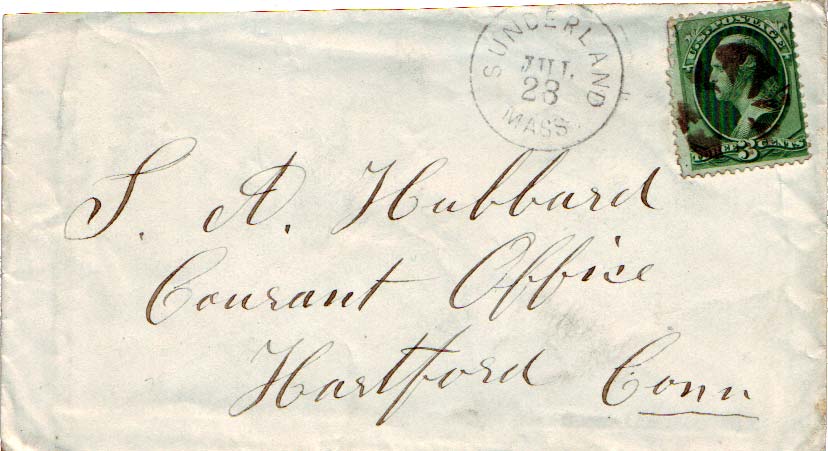 SUNDERLAND
JUL
28
MASS.
U.S. POSTAGE
THREE 3 CENTS
S. A. Hubbard
Courant Office
Hartford Conn